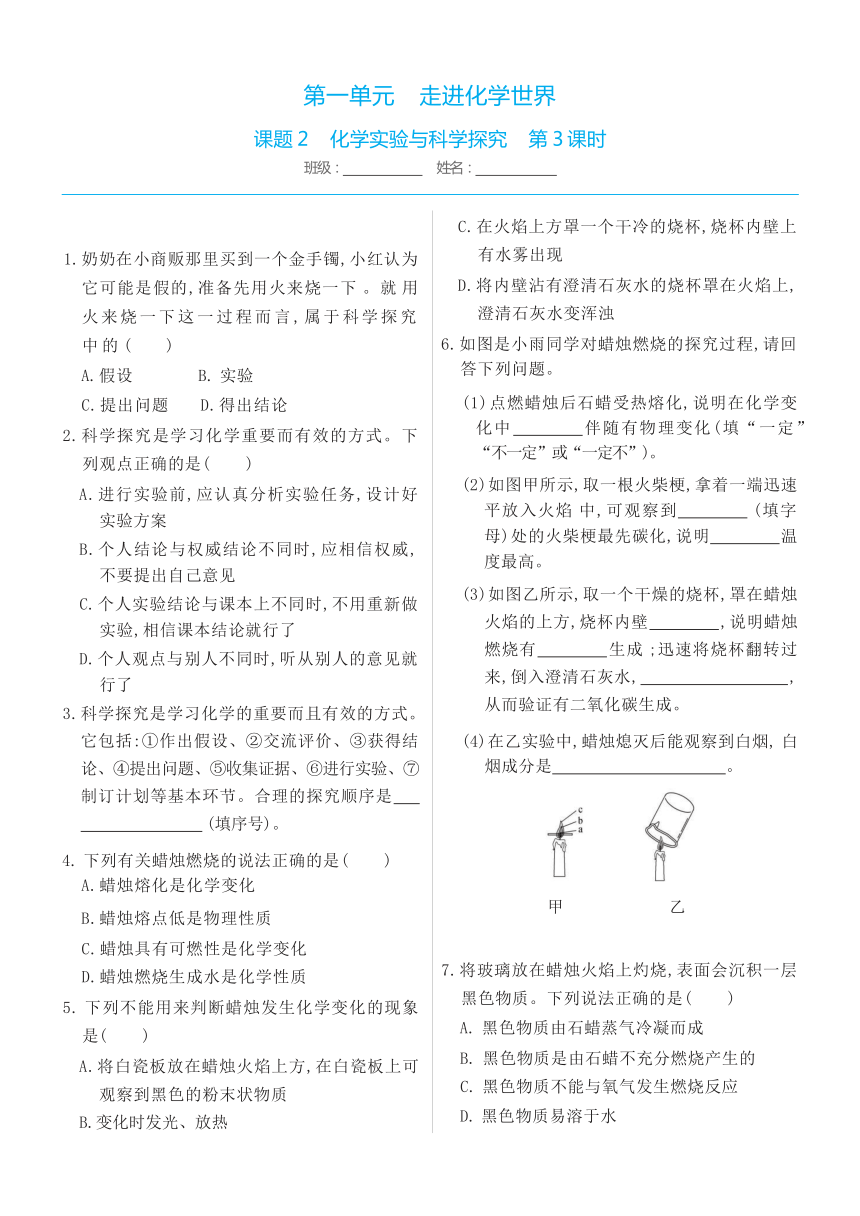 第一单元 走进化学世界
课题 2 化学实验与科学探究 第 3 课时
班级：__________ 姓名：__________
1. 奶奶在小商贩那里买到一个金手镯,小红认为
它可能是假的,准备先用火来烧一下 。就 用
火来烧一下这一过程而言,属于科学探究
中的( )
A.假设 B. 实验
C.提出问题 D.得出结论
2.科学探究是学习化学重要而有效的方式。下
列观点正确的是( )
A.进行实验前,应认真分析实验任务,设计好
实验方案
B.个人结论与权威结论不同时,应相信权威,
不要提出自己意见
C.个人实验结论与课本上不同时,不用重新做
实验,相信课本结论就行了
D.个人观点与别人不同时,听从别人的意见就
行了
3.科学探究是学习化学的重要而且有效的方式。
它包括:①作出假设、②交流评价、③获得结
论、④提出问题、⑤收集证据、⑥进行实验、⑦
制订计划等基本环节。合理的探究顺序是___
______________(填序号)。
4. 下列有关蜡烛燃烧的说法正确的是( )
A.蜡烛熔化是化学变化
B.蜡烛熔点低是物理性质
C.蜡烛具有可燃性是化学变化
D.蜡烛燃烧生成水是化学性质
5. 下列不能用来判断蜡烛发生化学变化的现象
是( )
A.将白瓷板放在蜡烛火焰上方,在白瓷板上可
观察到黑色的粉末状物质
B.变化时发光、放热
C.在火焰上方罩一个干冷的烧杯,烧杯内壁上
有水雾出现
D.将内壁沾有澄清石灰水的烧杯罩在火焰上,
澄清石灰水变浑浊
6.如图是小雨同学对蜡烛燃烧的探究过程,请回
答下列问题。
(1)点燃蜡烛后石蜡受热熔化,说明在化学变
化中________伴随有物理变化(填“一定”
“不一定”或“一定不”)。
(2)如图甲所示,取一根火柴梗,拿着一端迅速
平放入火焰 中,可观察到________ (填字
母)处的火柴梗最先碳化,说明________温
度最高。
(3)如图乙所示,取一个干燥的烧杯,罩在蜡烛
火焰的上方,烧杯内壁________,说明蜡烛
燃烧有________生成 ;迅速将烧杯翻转过
来,倒入澄清石灰水,________________,
从而验证有二氧化碳生成。
(4)在乙实验中,蜡烛熄灭后能观察到白烟, 白
烟成分是____________________ 。
c
b
a
甲 乙
7.将玻璃放在蜡烛火焰上灼烧,表面会沉积一层
黑色物质。下列说法正确的是( )
A. 黑色物质由石蜡蒸气冷凝而成
B. 黑色物质是由石蜡不充分燃烧产生的
C. 黑色物质不能与氧气发生燃烧反应
D. 黑色物质易溶于水